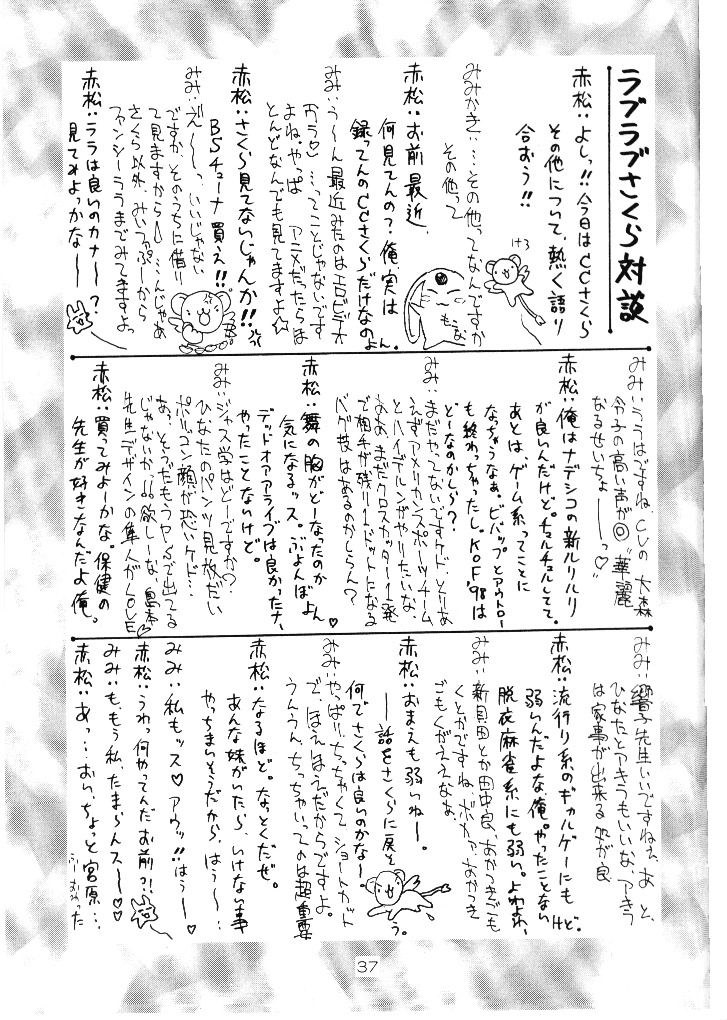 ラブラブさくら対談
赤松：よしっ!!今日はCCさくら
その他について、熱く語り
合おう!!
みみかき：…その他ってなんですか
その他って
赤松：お前最近、
何見てんの？俺、実は
録ってんのCCさくらだけなのよん。
みみ：う〜ん最近みたのはエロビデオ
とんどなんでも見てますよ☆
よね。やっぱ アニメだったらほ
赤松：さくら見てないじゃんか!!
BSチューナ買え!!
みみ：え〜〜っ、いいじゃない
ですか、そのうちに借り
て見ますから。…んじゃあ
さくら以外、みいファぷーから
ファンシーララまでみてますよっ
赤松：ララは良いのカナ〜？
見てみよっかな〜
みみ：ララはですね、CVの 大森
令子の高い声が◎ "華麗
なるせいちょーーっ♡"
赤松：俺はナデシコの新ルリルリ
が良いんだけど。チュルチュルしてて。
あとは、ゲーム系ってことに
なっちゃうなぁ。ビバップとアウトロー
も終わっちゃったし。KOF98は
どーなのかしら？
みみ：まだやってないですケド、とりあ
えずアメリカンスポーツチーム
とハイデルンがやりたいな、
でも相手が残り1ドットになる
バグ技はあるのかしらん？
赤松：舞の胸がどーなったのか
気になるッス。ぷよんぼよん♡
デッドオアアライブは良かったナ、
やったことないけど。
みみ：ジャス学はどーですか？
ひなたのパンツ見放だい
ポリゴン顔が恐いケド…
あっ、そうだもうPSで出てる
じゃないか!!。欲しーな、島本
先生デザインの隼人がLOVE♡
赤松：買ってみよーかな。保健の
先生が好きなんだよ俺。
みみ：響子先生いいですねぇ、あ と、
ひなたとアキラもいいな、アキラ
は家事が出来る 所が良
赤松：流行り系のギャルゲーにも
弱いんだよな、俺。やったことないけど。
脱衣麻雀系にも弱い。よわよわ、
みみ：新貝田とか田中良、あかつきごも
くとかですね、ボカァ、あかつき
ごもくがええなぁ
赤松：おまえも弱いねー。
ー話をさくらに戻そう。
何でさくらは良いのかな〜
みみ：やっぱ、ちっちゃくて ショートカット
で、ほえほえだからですよ。
うんうん、ちっちゃいってのは超重要
赤松：なるほど。なっとくだぜ。
あんな妹がいたら、いけない事
やっちまいそうだから、はぅ〜…
みみ：私もッス♡ アウッ!!はぅ〜
赤松：うわっ何やってんだお前?!
みみ：も、もう私、たまらんス〜〜♡♡
赤松：あっ…おい、ちょっと宮原…
37